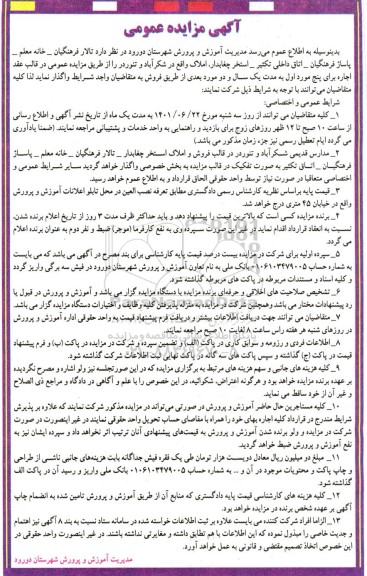 آگهی مزایده عمومی
بدینوسیله به اطلاع عموم می‌رسد مدیریت آموزش و پرورش شهرستان دورود در نظر دارد تالار فرهنگیان _ خانه معلم _
پاساژ فرهنگیان _ اتاق داخلی تکثیر _ استخر چغابدار، املاک واقع در شکرآباد و تنوردر را از طریق مزایده عمومی در قالب عقد
اجاره برای پنج مورد اول به مدت یک سال و دو مورد بعدی از طریق فروش به متقاضیان واجد شرایط واگذار نماید لذا کلیه
متقاضیان می‌توانند با توجه به شرایط ذیل شرکت نمایند:
شرایط عمومی و اختصاصی:
۱_ کلیه متقاضیان می توانند از روز سه شنبه مورخ ۱۴۰۱/۰۶/۲۲ به مدت یک ماه از تاریخ نشر آگهی و اطلاع رسانی
از ساعت ۱۰ صبح تا ۱۲ ظهر روزهای زوج برای بازدید و راهنمایی به واحد خدمات و پشتیبانی مراجعه نمایند. (ضمنا یادآوری
می گردد ایام تعطیل رسمی نیز جزء زمان مذکور می باشد.)
۲_ مدارس قدیمی شکرآباد و تنوردر در قالب فروش و املاک استخر چغابدار _ تالار فرهنگیان _ خانه معلم _ پاساژ
فرهنگیان _ اتاق تکثیر به صورت تفکیک در قالب مزایده به بخش خصوصی واگذار خواهد گردید سایر شرایط عمومی و
اختصاصی متعاقبا در صورت نیاز توسط واحد حقوقی الحاق قرارداد و به اطلاع عموم خواهد رسید.
۳_ قیمت پایه براساس نظریه کارشناس رسمی دادگستری مطابق تعرفه نصب العین در محل تابلو اعلانات آموزش و پرورش
واقع در خیابان ۴۵ متری درج خواهد شد.
۴_ برنده مزایده کسی است که بالاترین قیمت را پیشنهاد دهد و باید حداکثر ظرف مدت ۳ روز از تاریخ اعلام برنده شدن،
نسبت به انعقاد قرارداد اقدام نماید در غیر این صورت سپرده وی به نفع کارفرما (موجر) ضبط و نفر دوم به عنوان برنده اعلام
می گردد.
۵_ سپرده اولیه برای شرکت در مزایده بیست درصد قیمت پایه کارشناسی برای بند مصرح در آگهی می باشد که می بایست
به شماره حساب ۰۱۰۶۱۰۳۴۷۹۰۰۵ بانک ملی به نام تعاون آموزش و پرورش شهرستان دورود در فیش سه برگی واریز گردد
و کلیه اسناد و مستندات مربوطه در پاکت های مربوطه گذاشته شود.
۶_ تشخیص صلاحیت های اخلاقی و حرفه‌ای برنده مزایده با دستگاه مزایده گزار می باشد و آموزش و پرورش در قبول یا
رد پیشنهادات مختار می باشد وهمچنین شرکت در مزایده به منزله پذیرفتن کلیه وظایف و اختیارات دستگاه مزایده گزار می باشد.
۷_ متقاضیان می توانند جهت دریافت اطلاعات بیشتر و دریافت فرم پیشنهاد قیمت به واحد حقوقی اداره آموزش و پرورش
در روزهای شنبه هر هفته راس ساعت ۸ لغایت ۱۰ صبح مراجعه نمایند.
۸_ اطلاعات فردی و رزومه و سوابق کاری در پاکت (الف) و تضمین سپرده و شرکت در مزایده در پاکت (ب) و فرم پیشنهاد
قیمت در پاکت (ج) گذاشته و سپس پاکت های سه گانه در پاکت نهایی ثبت اطلاعات شرکت گذاشته شود.
۹_ کلیه هزینه های جانبی و سهم هزینه های مرتبط به برگزاری مزایده که در این صورتجلسه نیز ولو اشاره و مصرح نگردیده
بر عهده برنده مزایده خواهد بود و هرگونه اعتراض، شکوائیه، در این خصوص را با علم و آگاهی در دادگاه و مراجع ذی الصلاح
و غیر آن از خود ساقط می نماید.
۱۰_ کلیه مستاجرین حال حاضر آموزش و پرورش در صورتی می‌تواند در مزایده مذکور شرکت نمایند که علاوه بر پذیرش
شرایط مندرج در قرارداد کلیه اجاره بهای خود را همراه با مفاصای حساب تحویل واحد حقوقی نمایند در غیر اینصورت در صورت
شرکت در مزایده و ولو برنده شدن آموزش و پرورش به قیمت‌های پیشنهادی آنان ترتیب اثر نخواهد داد و سپرده ایشان نیز به
نفع آموزش و پرورش ضبط خواهد گردید.
۱۱_ مبلغ دو میلیون ریال معادل دویست هزار تومان طی یک فقره فیش جداگانه بابت هزینه‌های جانبی ناشی از طراحی
و چاپ پاکت و محتویات موجود در آن و ... به شماره حساب ۰۱۰۶۱۰۳۴۷۹۰۰۵ بانک ملی واریز و رسید آن در پاکت الف
گذاشته شود.
۱۲_ کلیه هزینه های کارشناسی قیمت پایه دادگستری که منابع آن از طریق آموزش و پرورش تامین شده به انضمام چاپ
آگهی بر عهده شخص برنده در مزایده خواهد بود.
۱۳_ الزاما افراد شرکت کننده می بایست علاوه بر ثبت اطلاعات خواسته شده در سامانه ستاد نسبت به بند ۸ آگهی نیز اهتمام
و جدیت خاصی را مبذول نموده که این اطلاعات با هم تطابق داشته و مغایرتی نداشته باشند. در غیر اینصورت واحد حقوقی در
این خصوص اتخاذ تصمیم مقتضی و قانونی به عمل خواهد آورد.
مدیریت آموزش و پرورش شهرستان دورود